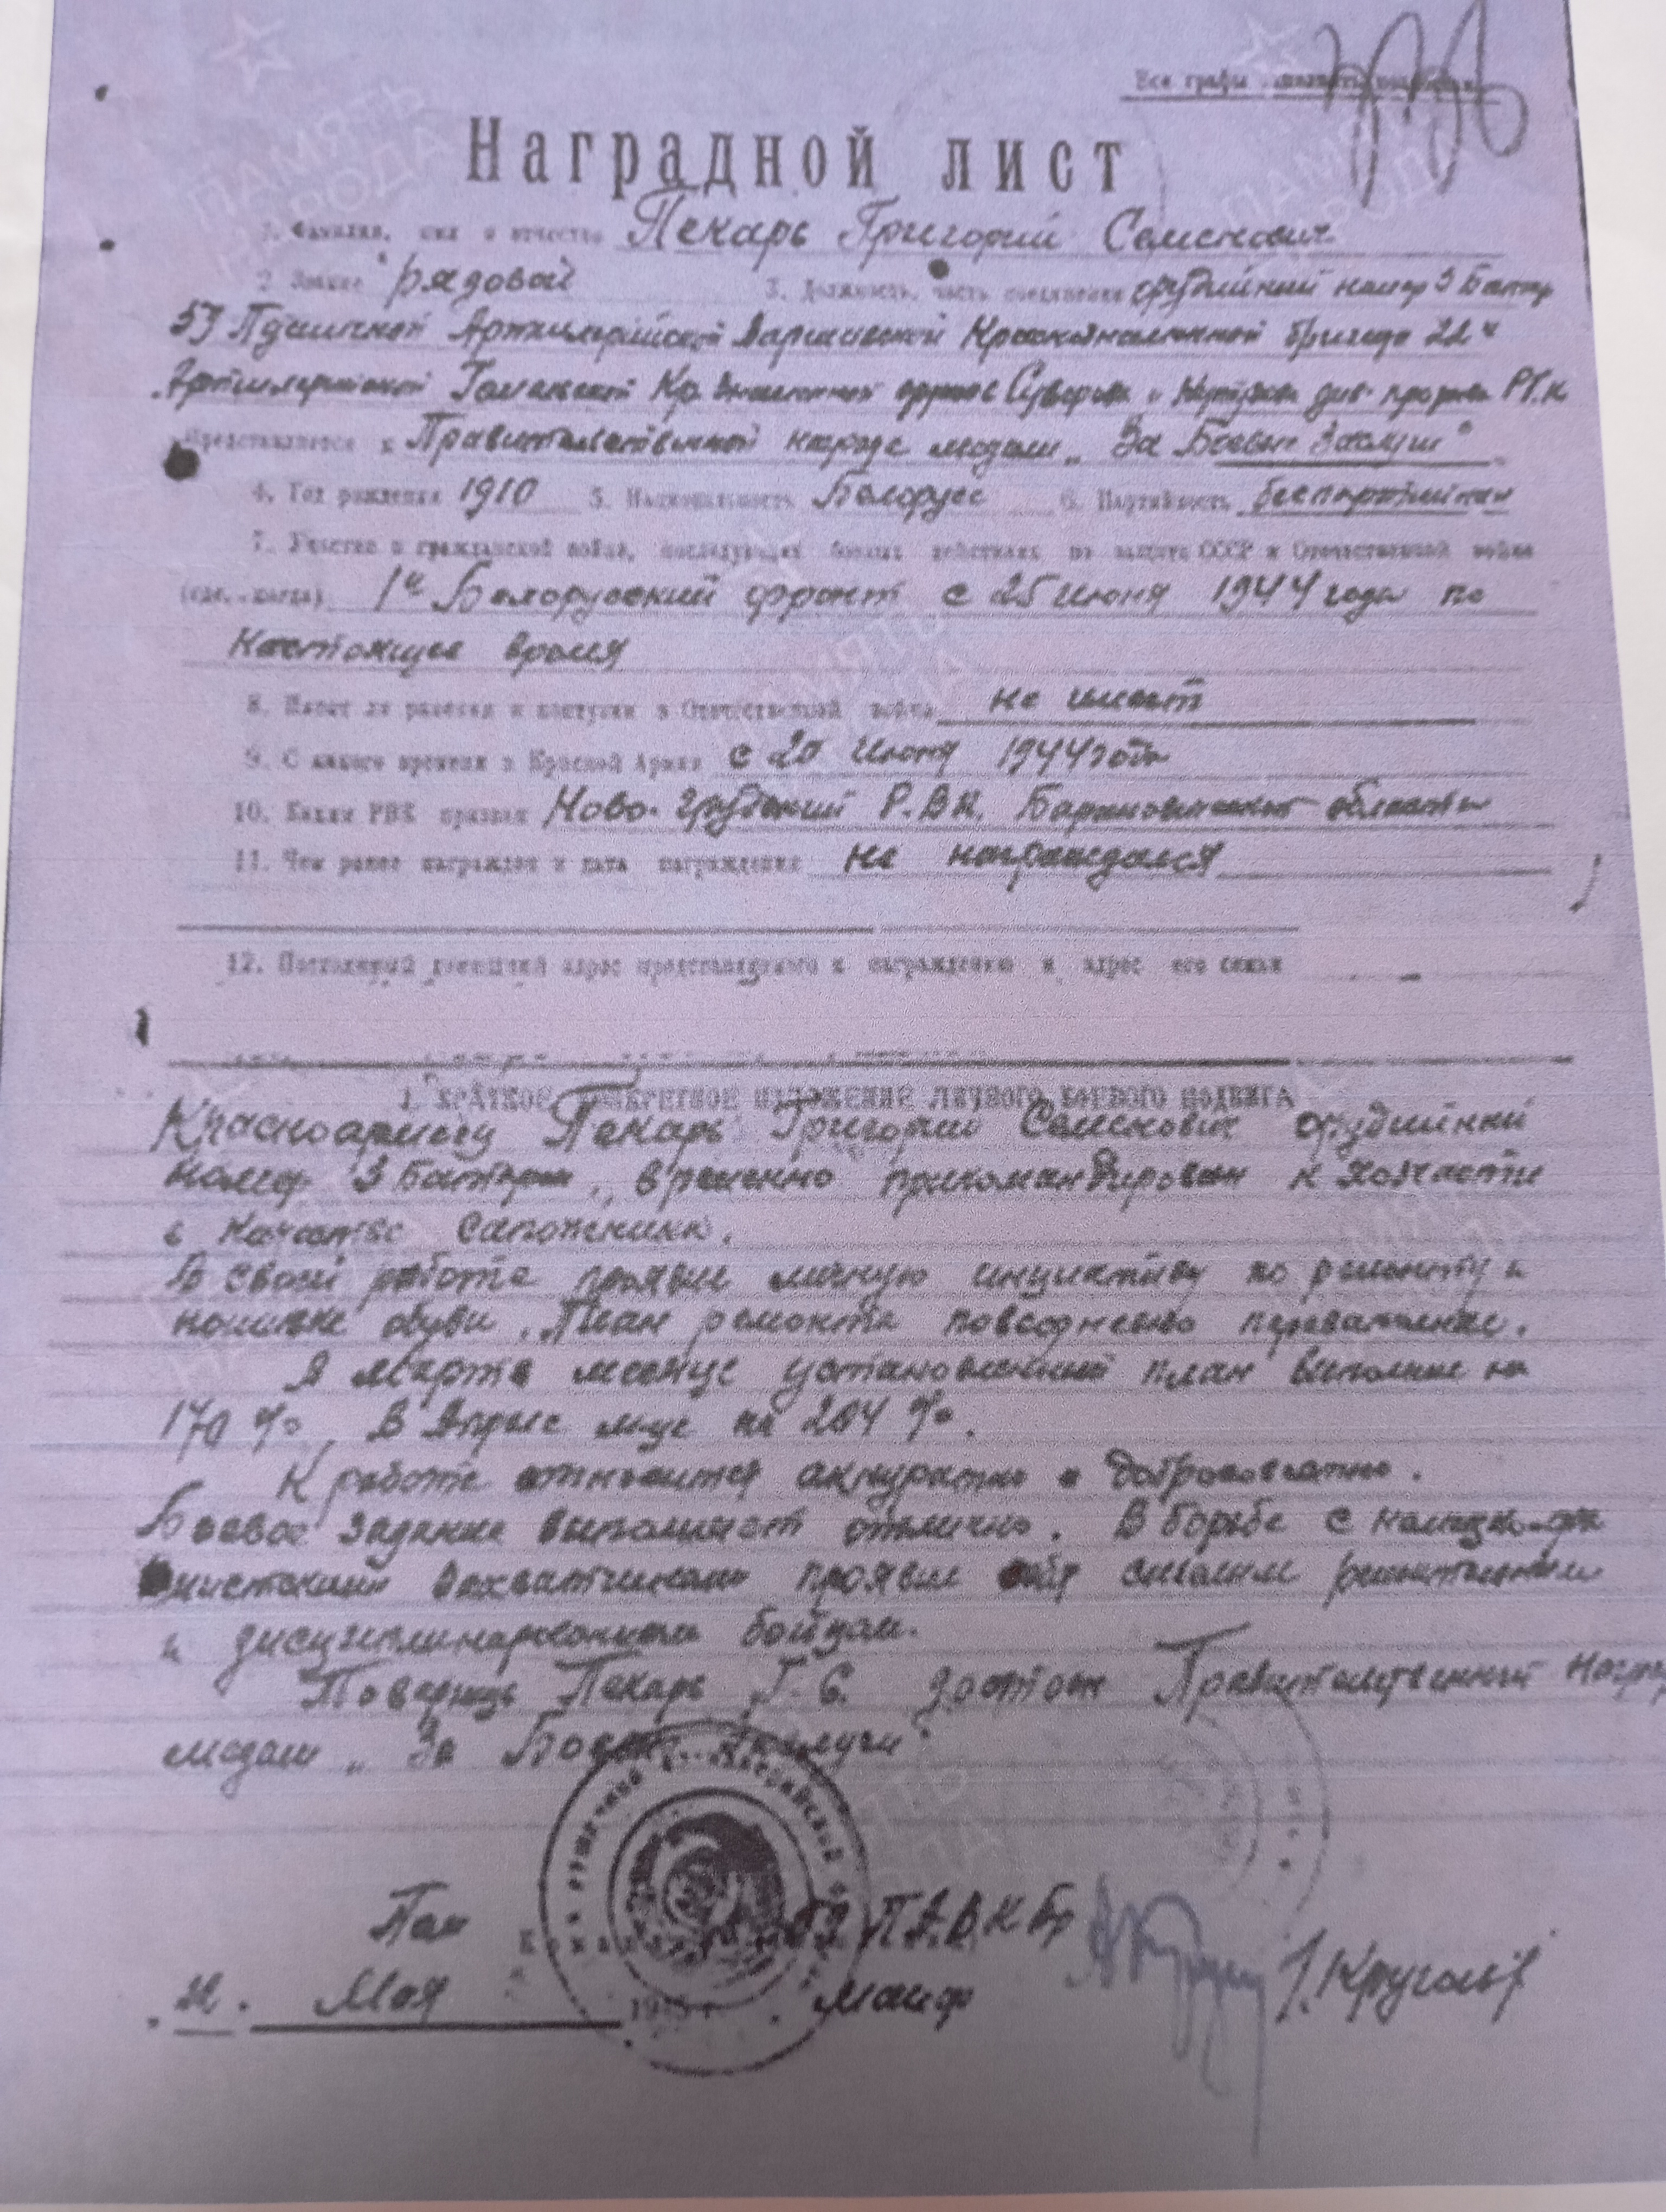 Все графы заполнять полностью
Наградной лист
1. Фамилия, имя и отчество Пекарь Григорий Семенович
2. Звание рядовой 3. Должность, часть соединение орудийный номер 3 Батар
Пушечной Артиллерийской Варшавской Краснознаменной бригады 22й
Артиллерийской Гомельской Кр. Знаменной орденов Суворова и Кутузова див. прорыва РГК
Представляется к Правительственной награде медали „За Боевые Заслуги"
4. Год рождения 1910 5. Национальность Белорусс 6. Партийность беспартийный
7. Участие в гражданской войне, последующих боевых действиях по защите СССР и Отечественной войне
(где, когда) 1й Белорусский фронт с 25 июня 1944 года по
настоящее время
8. Имеет ли ранения и контузии в Отечественной войне не имеет
9. С какого времени в Красной Армии с 20 Июня 1944 года
10. Каким РВК призван Ново-Грудский Р.В.К. Барановичской области
11. Чем ранее награжден и дата награждения не награждался
12. Постоянный домашний адрес представляемого к награждению и адрес его семьи
1. КРАТКОЕ КОНКРЕТНОЕ ИЗЛОЖЕНИЕ ЛИЧНОГО БОЕВОГО ПОДВИГА
Красноармеец Пекарь Григорий Семенович орудийный
номер 3 Батареи, временно прикомандирован к хозчасти
в качестве сапожника.
В своей работе проявил личную инициативу по ремонту и
пошивке обуви. План ремонта повседневно перевыполнял.
В марте месяце установленный план выполнил на
170 %. В Апреле м-це на 204 %.
К работе относится аккуратно и добросовестно.
Боевое задание выполняет отлично. В борьбе с
захватчиками проявил себя смелым решительным
и дисциплинированным бойцом.
Товарищ Пекарь Г. С. достоин Правительственной наград
медали „За Боевые Заслуги"
П.А.В.К Бр
Мая 1945 г. Круглов